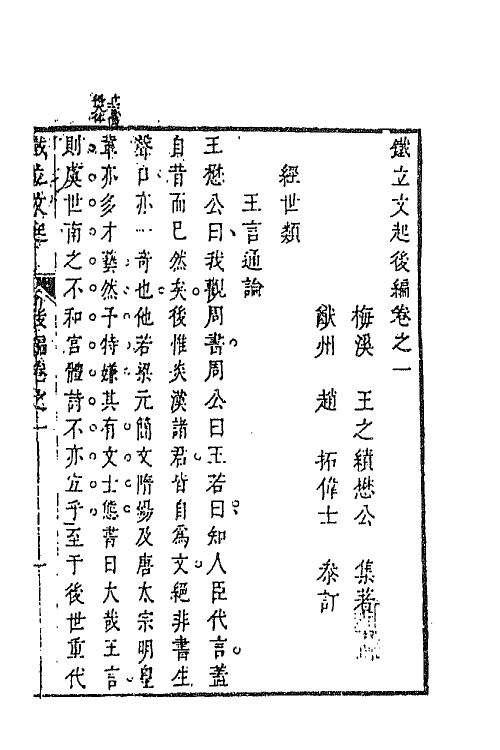 鐵立文起後編卷之一
梅溪 王之績懋公 集著
猷州 趙 拓偉士 叅訂
經世類
王言通論
王懋公曰我觀周書周公曰王若曰知人臣代言蓋
自昔而已然矣後惟炎漢諸君皆自爲文絕非書生
聲口亦一奇也他若梁元簡文隋煬及唐太宗明皇
輩亦多才藝然予特嫌其有文士態書曰大哉王言
則虞世南之不和宮體詩不亦宜乎至于後世重代
鐵立文起
後編卷之一